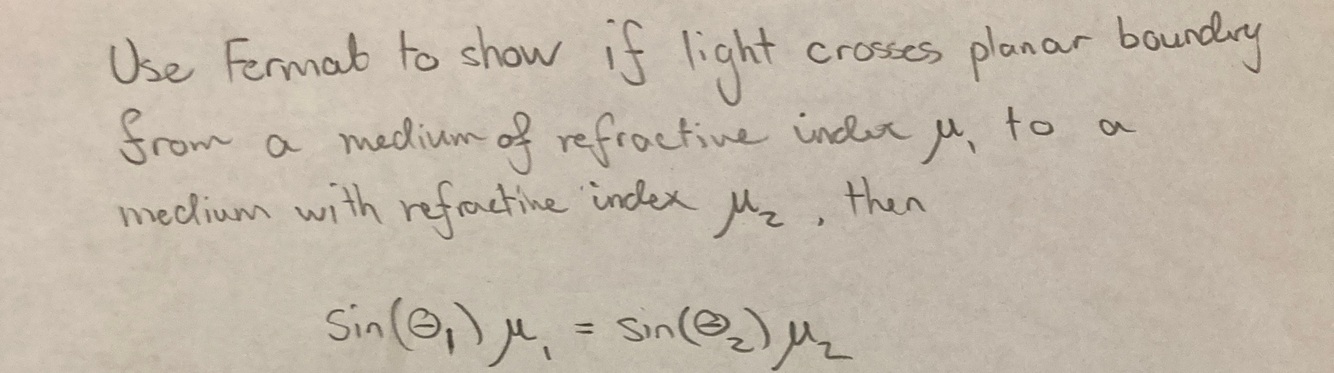 Use Fermat to show if light crosses planar boundry
from a medium of refractive index μ₁ to a
medium with refractive index μ₂, then
sin(Θ₁) μ₁ = sin(Θ₂) μ₂